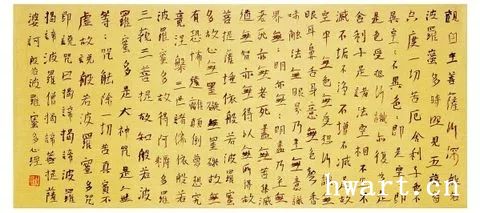 觀自在菩薩行深般若
波羅蜜多時照見五蘊皆
空度一切苦厄舍利子色不
異空空不異色色即是空空即
是色受想行識亦復如是
舍利子是諸法空相不生不
滅不垢不淨不增不減是故
空中無色無受想行識無
眼耳鼻舌身意無色聲香
味觸法無眼界乃至無意
識界無無明亦無無明盡乃至無
老死亦無老死盡無苦集滅
道無智亦無得以無所得故
菩提薩埵依般若波羅蜜
多故心無罣礙無罣礙故無
有恐怖遠離顛倒夢想究
竟涅槃三世諸佛依般若波
羅蜜多故得阿耨多羅
三藐三菩提故知般若波
羅蜜多是大神咒是大明咒是無上咒是無
等等咒能除一切苦真實不
虛故說般若波羅蜜多咒
即說咒曰揭諦揭諦波羅
揭諦波羅僧揭諦菩提薩
婆訶 般若波羅蜜多心經
hwart.cn